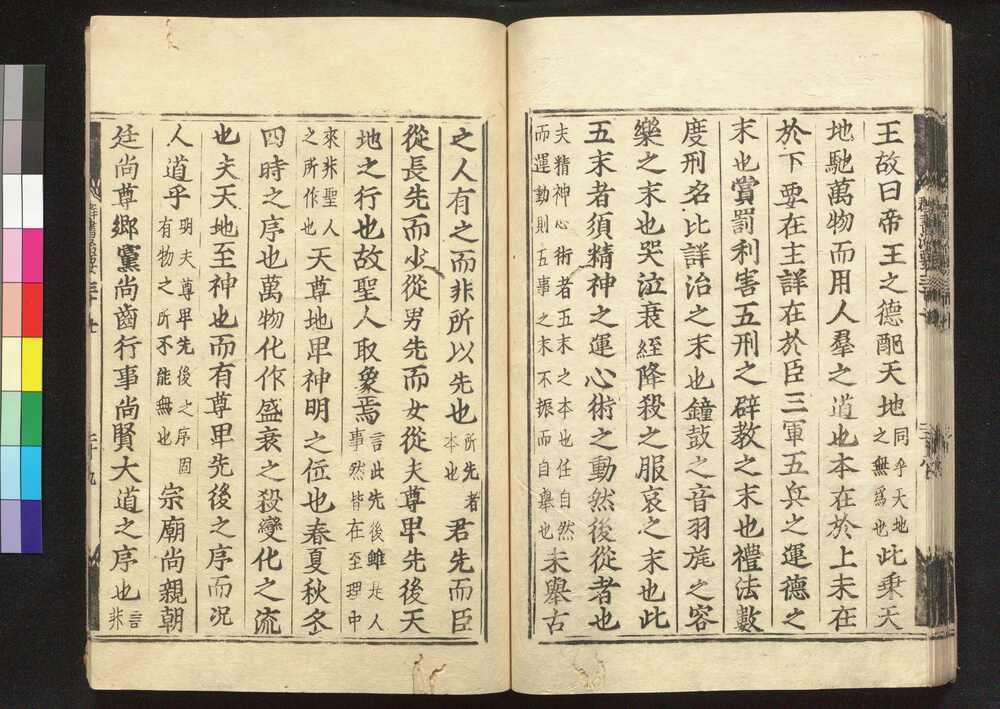 王故曰帝王之德配天地同乎天地之無爲也此乗天
地馳萬物而用人羣之道也本在於上末在
於下要在主詳在於臣三軍五兵之運德之
末也賞罰利害五刑之辟教之末也禮法數
度刑名比詳治之末也鐘鼓之音羽旄之容
樂之末也哭泣衰絰降殺之服哀之末也此
五末者須精神之運心術之動然後從者也
夫精神心術者五末之本也任自然而運動則五事之末不振而自舉也末舉古
之人有之而非所以先也所先者本也君先而臣
從長先而少從男先而女從夫尊卑先後天
地之行也故聖人取象焉言此先後雖是人事然皆在至理中
來非聖人之所作也天尊地卑神明之位也春夏秋冬
四時之序也萬物化作盛衰之殺變化之流
也夫天地至神也而有尊卑先後之序而況
人道乎明夫尊卑先後之序固有物之所不能無也宗廟尚親朝
廷尚尊郷黨尚齒行事尚賢大道之序也言非
群書治要三十七
二十九